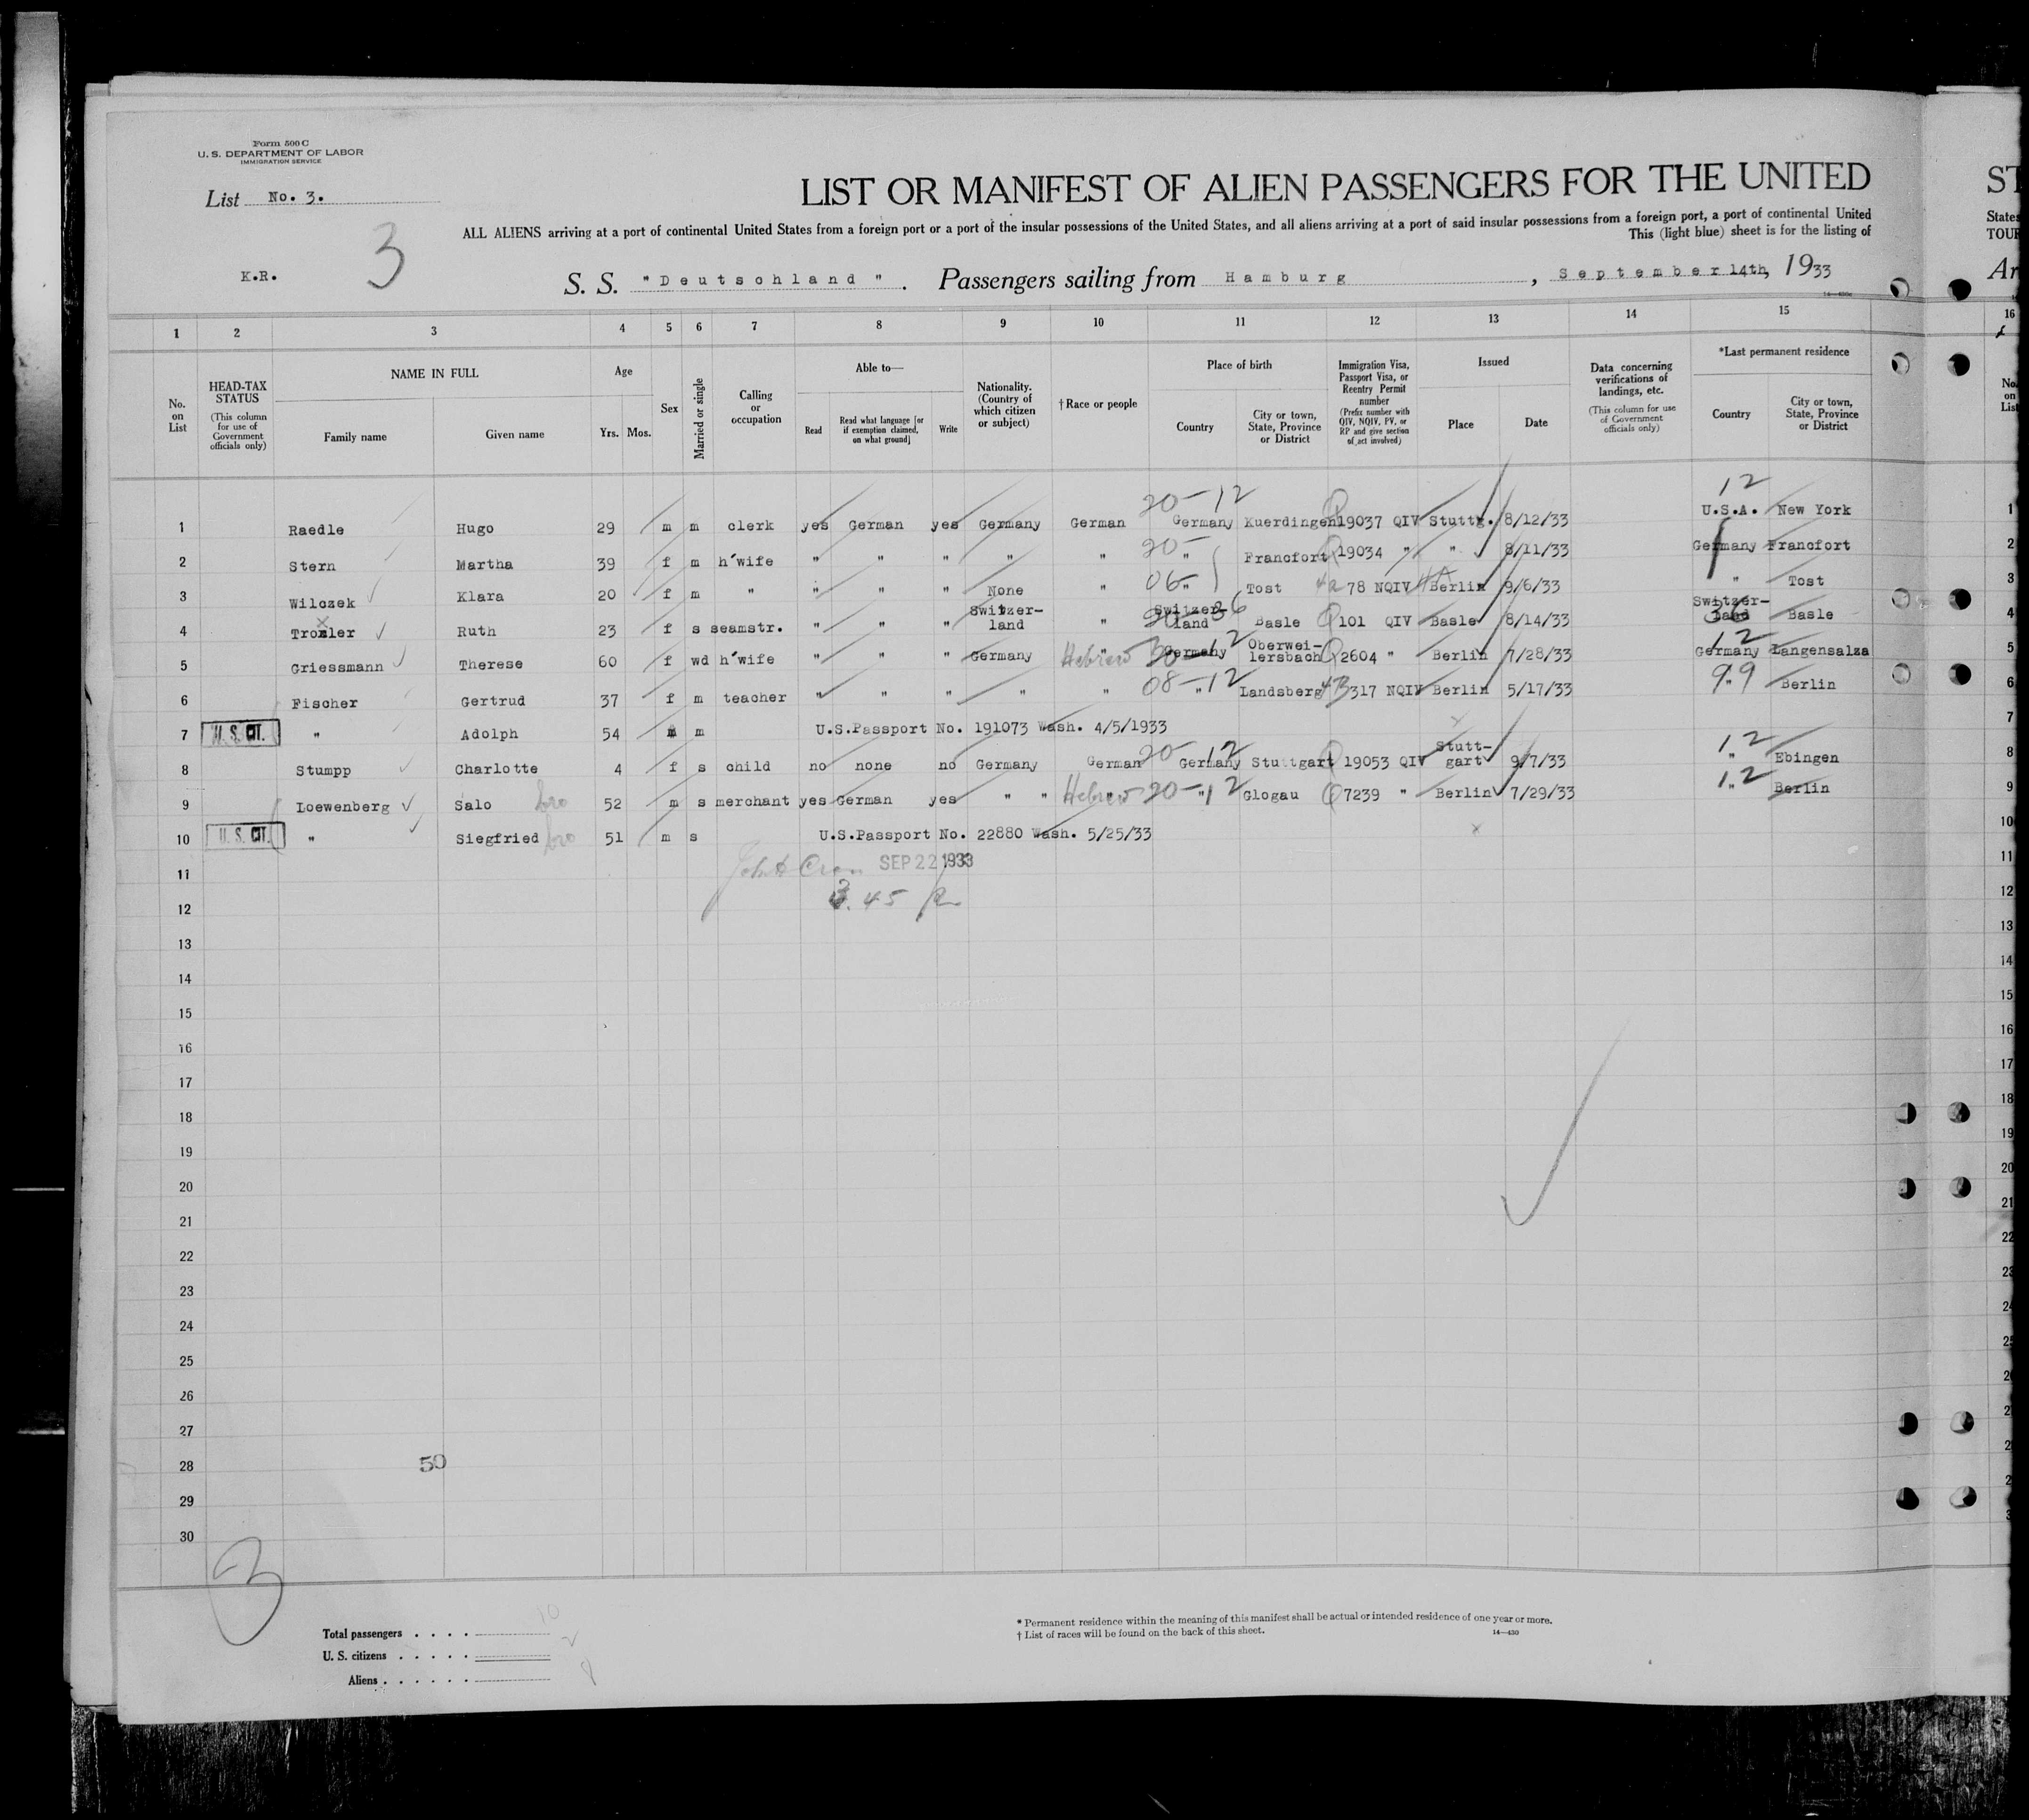 Form 500 C
U. S. DEPARTMENT OF LABOR
IMMIGRATION SERVICE
List No. 3.
3
K.R.
LIST OR MANIFEST OF ALIEN PASSENGERS FOR THE UNITED
ALL ALIENS arriving at a port of continental United States from a foreign port or a port of the insular possessions of the United States, and all aliens arriving at a port of said insular possessions from a foreign port, a port of continental United
This (light blue) sheet is for the listing of
S. S. "Deutschland". Passengers sailing from Hamburg, September 14th, 1933
ST
States
TOUR
Ar
1 2 3 4 5 6 7 8 9 10 11 12 13 14 15 16
No. on List
HEAD-TAX STATUS (This column for use of Government officials only)
NAME IN FULL Family name Given name
Age Yrs. Mos.
Sex
Married or single
Calling or occupation
Able to— Read Read what language [or if exemption claimed, on what ground] Write
Nationality. (Country of which citizen or subject)
†Race or people
Place of birth Country City or town, State, Province or District
Immigration Visa, Passport Visa, or Reentry Permit number (Prefix number with QIV, NQIV, PV, or RP and give section of act involved)
Issued Place Date
Data concerning verifications of landings, etc. (This column for use of Government officials only)
*Last permanent residence Country City or town, State, Province or District
No. on List
20-12 12
1 Raedle Hugo 29 m m clerk yes German yes Germany German Germany Kuerdingen 19037 QIV Stuttg. 8/12/33 U.S.A. New York 1
20-
2 Stern Martha 39 f m h'wife " " " " " " Francfort 19034 " " 8/11/33 Germany Francfort 2
06-
3 Wilczek Klara 20 f m " " " " None " " Tost 78 NQIV Berlin 9/6/33 " Tost 3
4 Troxler Ruth 23 f s seamstr. " " " Switzer-land " Switzer-land 36 Basle 101 QIV Basle 8/14/33 Switzer-land 36 Basle 4
5 Griessmann Therese 60 f wd h'wife " " " Germany Hebrew " Germany 12 Oberwei-lersbach 2604 " Berlin 7/28/33 Germany 12 Langensalza 5
6 Fischer Gertrud 37 f m teacher " " " " " 08-12 " Landsberg 317 NQIV Berlin 5/17/33 99 " Berlin 6
7 U.S. CIT. " Adolph 54 m m U.S.Passport No. 191073 Wash. 4/5/1933 7
8 Stumpp Charlotte 4 f s child no none no Germany German 20-12 Germany Stuttgart 19053 QIV Stutt-gart 9/7/33 12 " Ebingen 8
9 Loewenberg Salo bro 52 m s merchant yes German yes " " Hebrew " 20-12 " Glogau 7239 " Berlin 7/29/33 12 " Berlin 9
10 U.S. CIT. " Siegfried bro 51 m s U.S.Passport No. 22880 Wash. 5/25/33 10
11 SEP 22 1933 11
12 3.45 12
13 13
14 14
15 15
16 16
17 17
18 18
19 19
20 20
21 21
22 22
23 23
24
25
26
27
28 50
29
30
3
Total passengers . . . . 10
U. S. citizens . . . . . 2
Aliens . . . . . . 8
* Permanent residence within the meaning of this manifest shall be actual or intended residence of one year or more.
† List of races will be found on the back of this sheet.
14—430